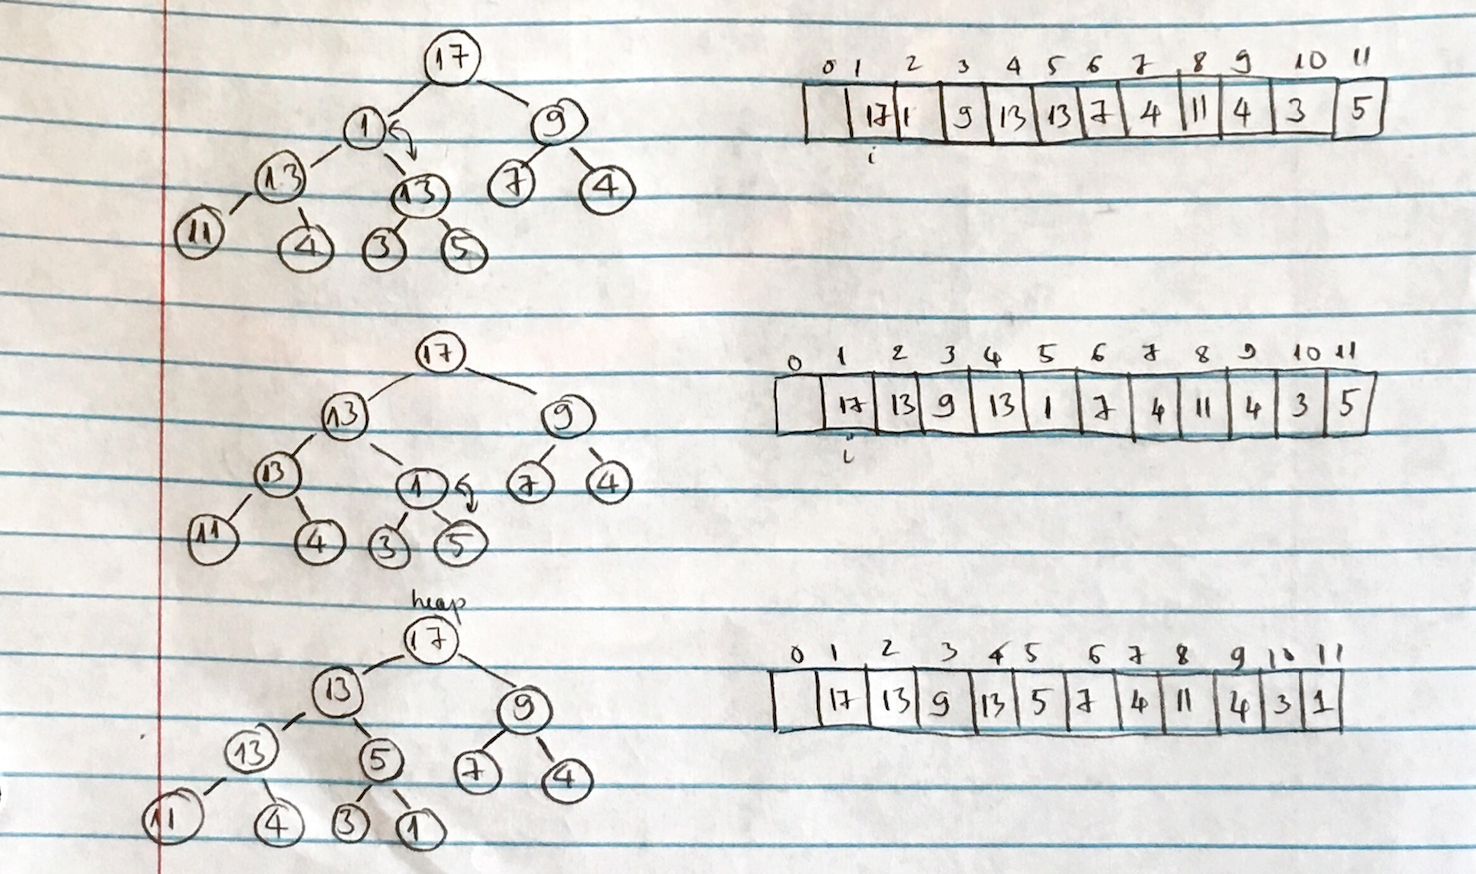 17
1 9
13 13 7 4
11 4 3 5
0 1 2 3 4 5 6 7 8 9 10 11
17 1 9 13 13 7 4 11 4 3 5
i
17
13 9
13 1 7 4
11 4 3 5
0 1 2 3 4 5 6 7 8 9 10 11
17 13 9 13 1 7 4 11 4 3 5
i
heap
17
13 9
13 5 7 4
11 4 3 1
0 1 2 3 4 5 6 7 8 9 10 11
17 13 9 13 5 7 4 11 4 3 1